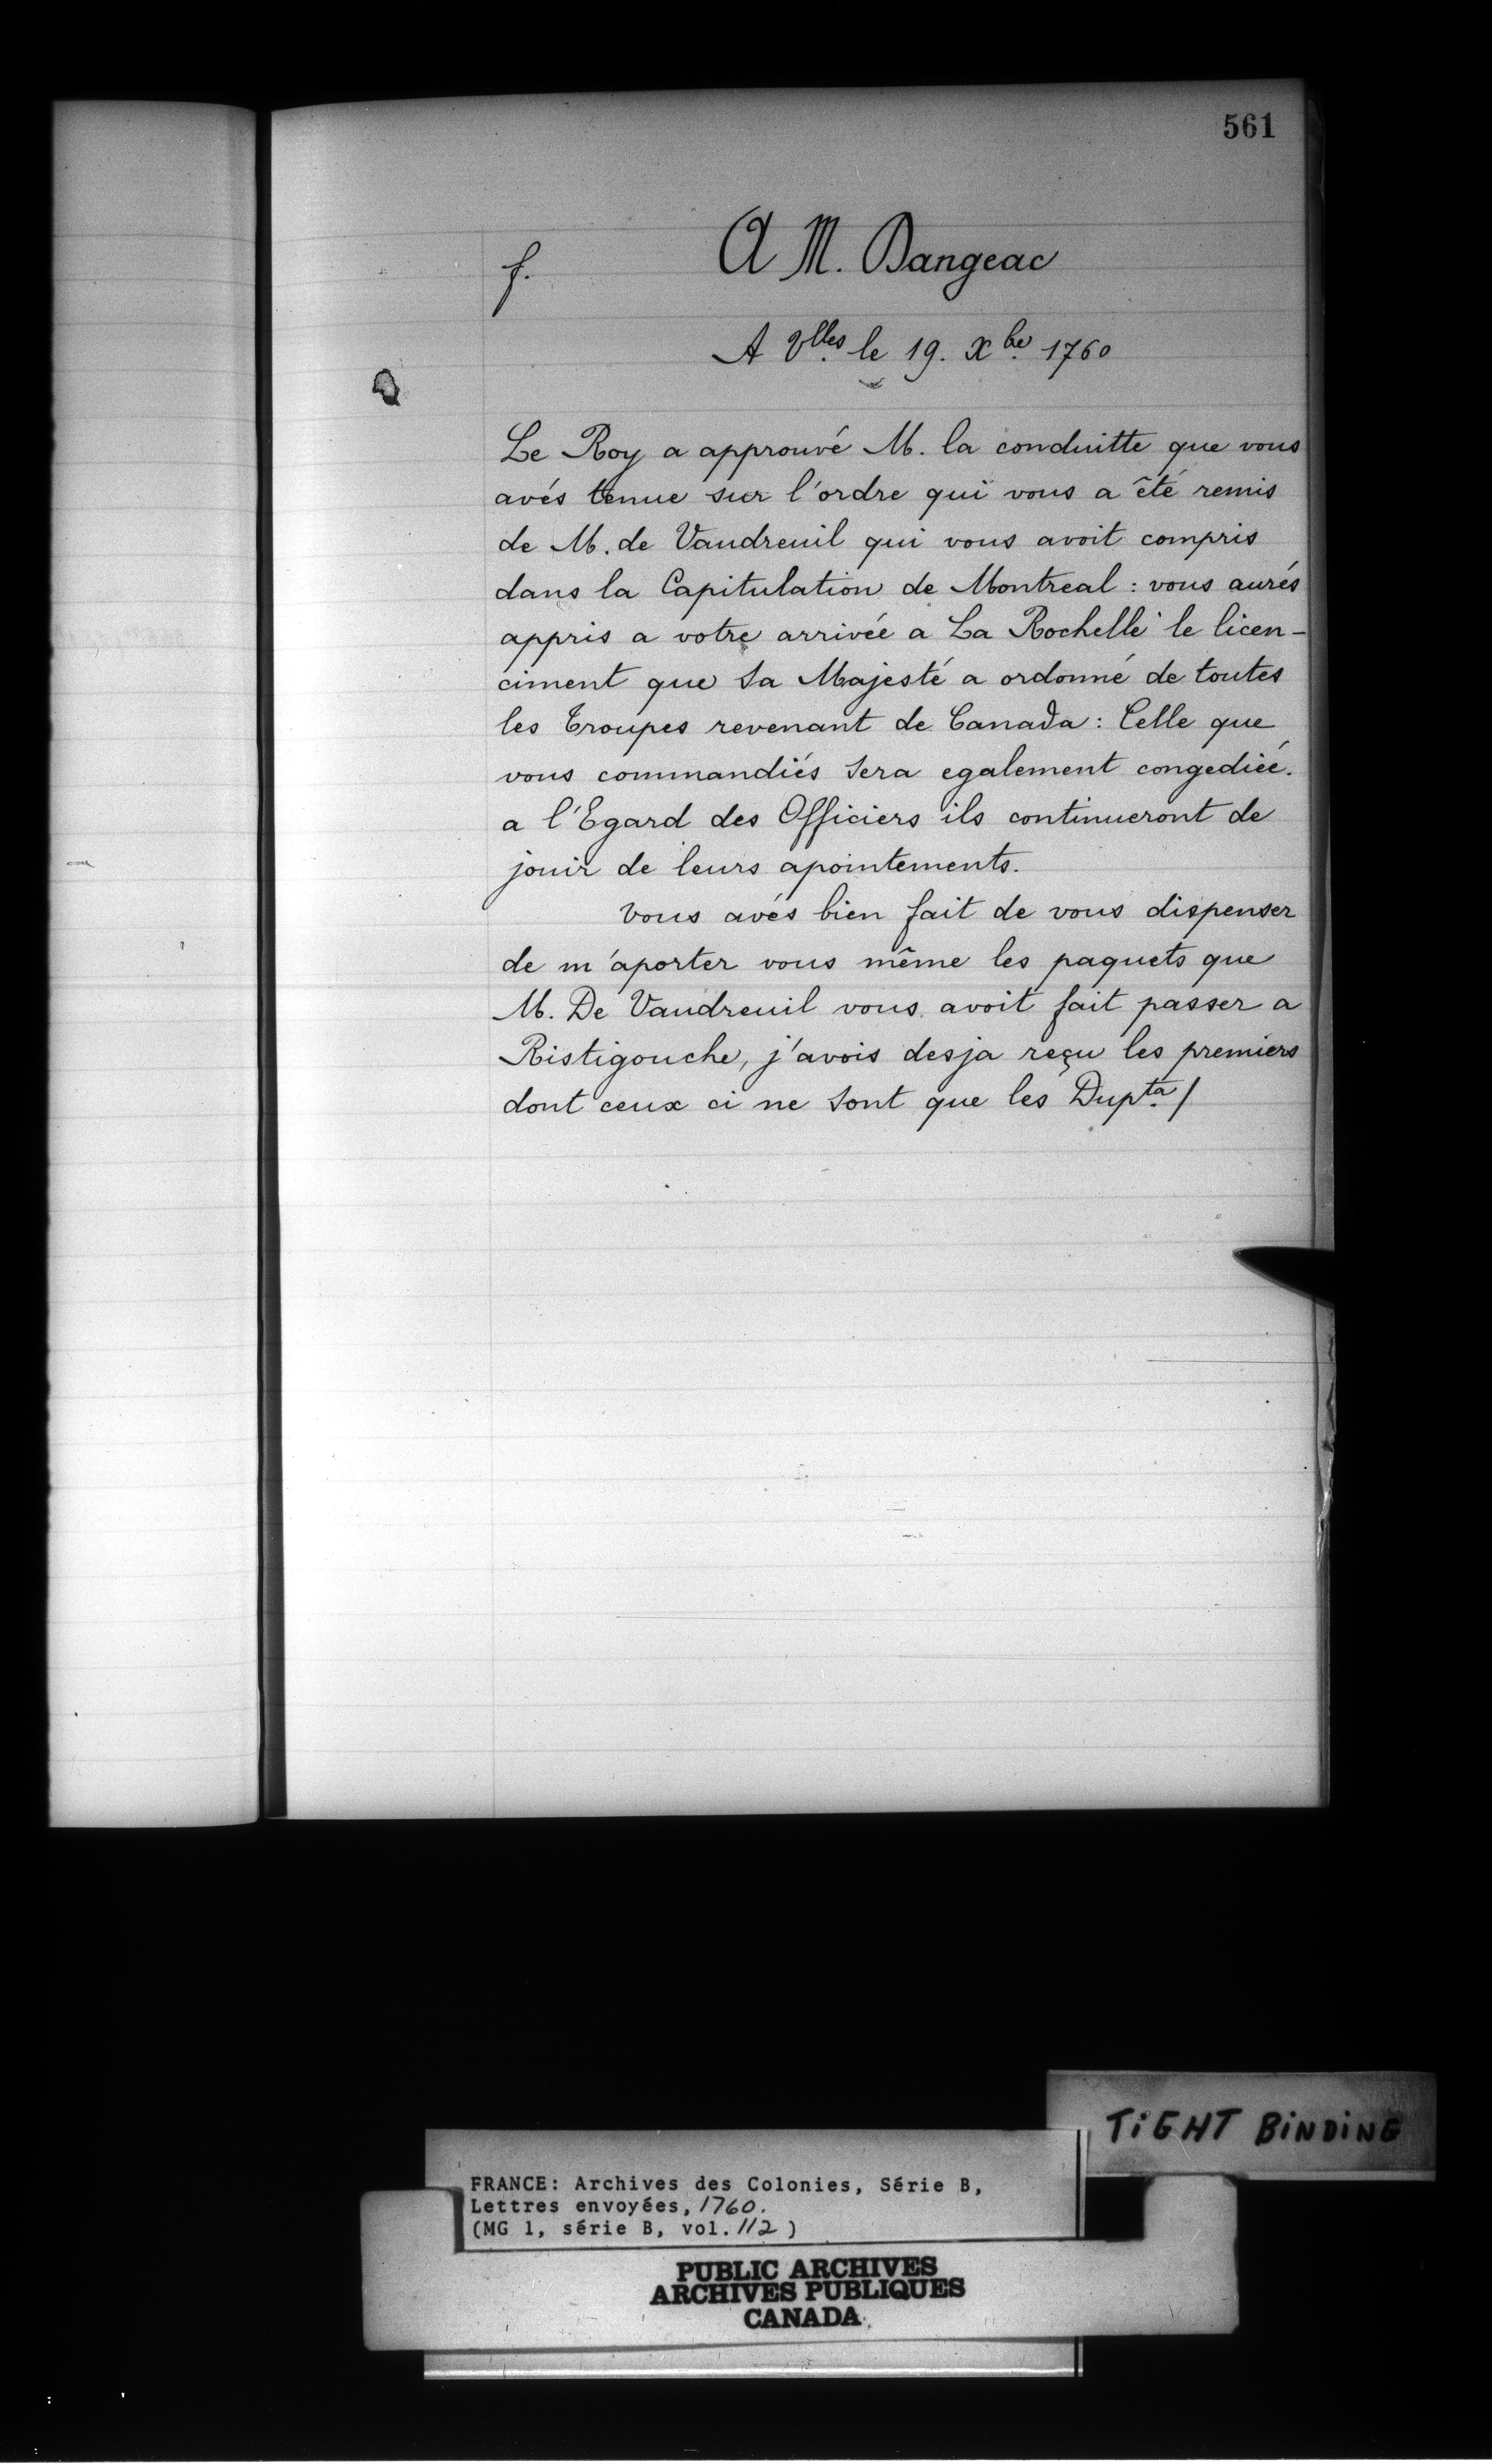 561
f.
A M. Dangeac
A Vlles le 19. Xbre 1760
Le Roy a approuvé M. la conduitte que vous
avés tenue sur l'ordre qui vous a êté remis
de M. de Vaudreuil qui vous avoit compris
dans la Capitulation de Montreal : vous aurés
appris a votre arrivée a La Rochelle le licen-
ciment que Sa Majesté a ordonné de toutes
les Troupes revenant de Canada : Celle que
vous commandiés sera egalement congediée.
a l'Egard des Officiers ils continueront de
jouir de leurs apointements.
Vous avés bien fait de vous dispenser
de m'aporter vous même les paquets que
M. De Vaudreuil vous avoit fait passer a
Ristigouche, j'avois desja reçu les premiers
dont ceux ci ne sont que les Dupta /
TiGHT BiNDiNG
FRANCE: Archives des Colonies, Série B,
Lettres envoyées, 1760.
(MG 1, série B, vol. 112 )
PUBLIC ARCHIVES
ARCHIVES PUBLIQUES
CANADA